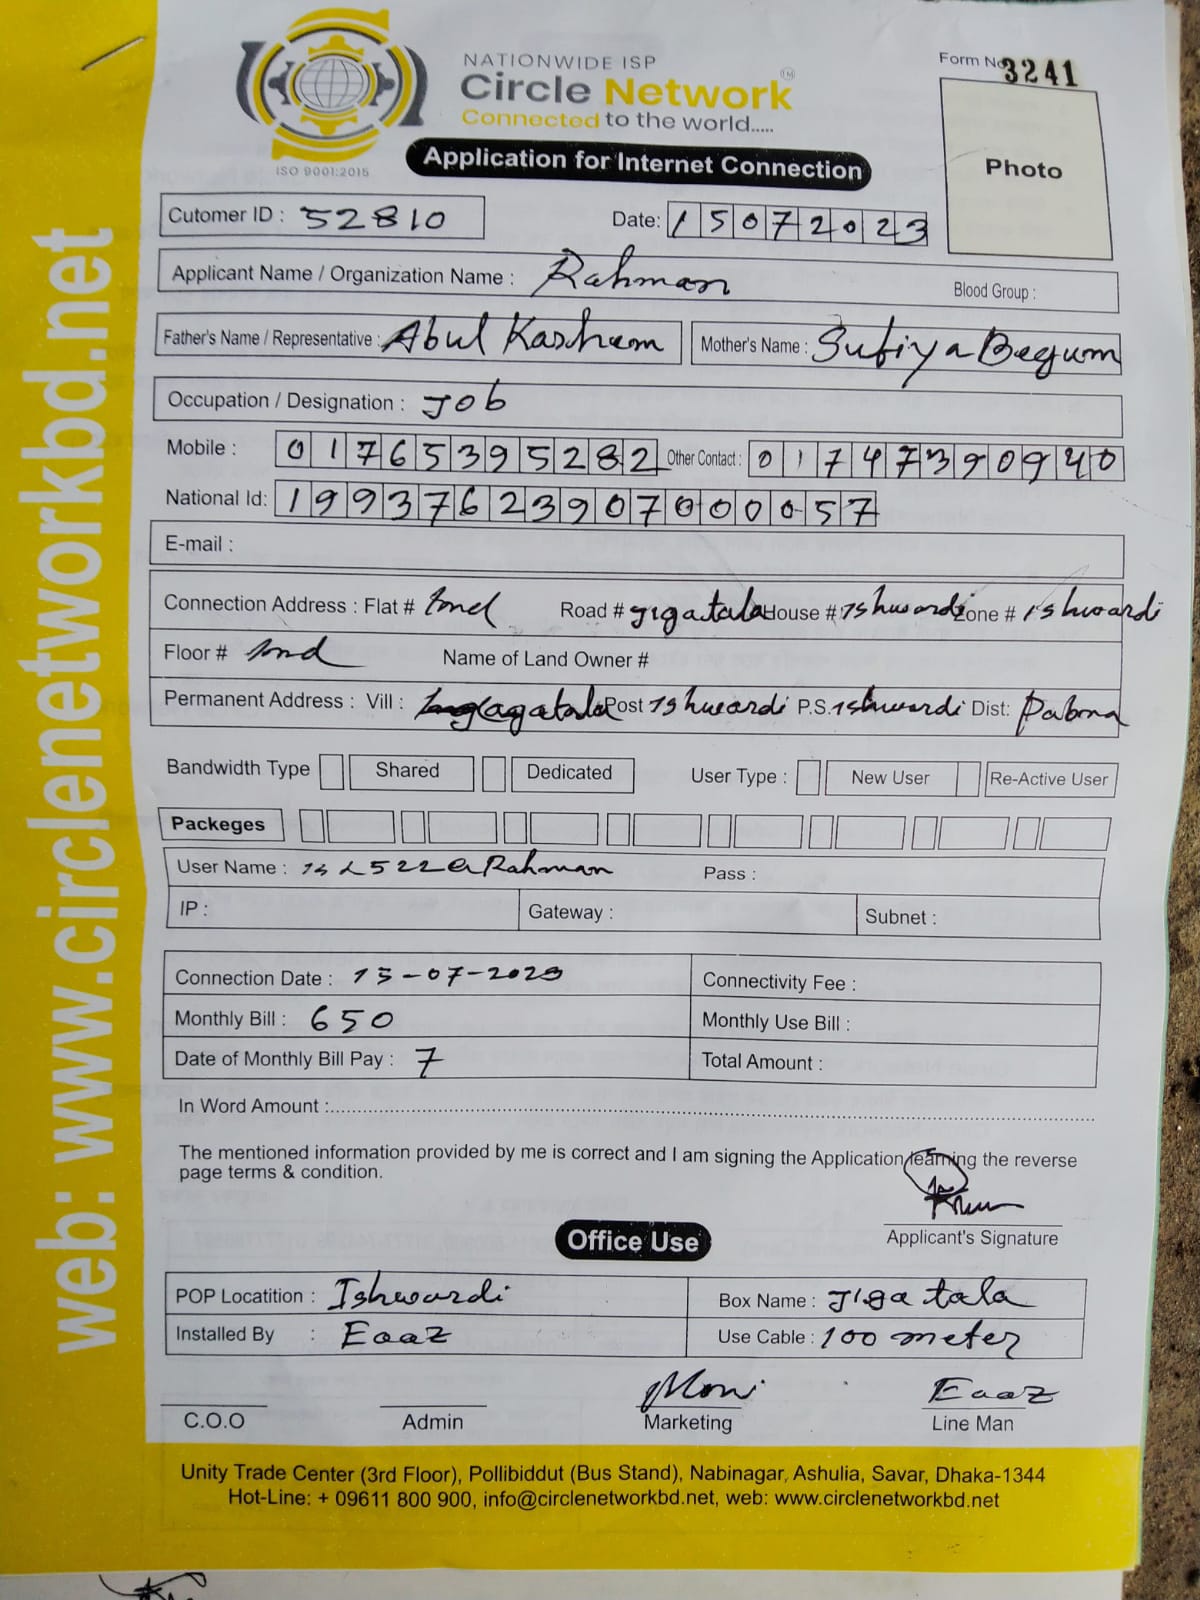 NATIONWIDE ISP
Circle Network TM
Connected to the world.....
ISO 9001:2015
Form No 3241
Photo
Application for Internet Connection
Cutomer ID : 52810
Date: 15072023
Applicant Name / Organization Name : Rahman
Blood Group :
Father's Name / Representative : Abul Kashem
Mother's Name : Sufiya Begum
Occupation / Designation : Job
Mobile : 01765395282 Other Contact : 01747390940
National Id: 19937623907000057
E-mail :
Connection Address : Flat # Road # Jigatala House # Ishwardi Zone # Ishwardi
Floor # Name of Land Owner #
Permanent Address : Vill : Post Ishwardi P.S. Ishwardi Dist: Pabna
Bandwidth Type Shared Dedicated User Type : New User Re-Active User
Packeges
User Name : Rahman Pass :
IP : Gateway : Subnet :
Connection Date : 15-07-2023 Connectivity Fee :
Monthly Bill : 650 Monthly Use Bill :
Date of Monthly Bill Pay : 7 Total Amount :
In Word Amount :
The mentioned information provided by me is correct and I am signing the Application learning the reverse
page terms & condition.
Applicant's Signature
Office Use
POP Locatition : Ishwardi Box Name : Jigatala
Installed By : Eaaz Use Cable : 100 meter
Moni Eaaz
C.O.O Admin Marketing Line Man
Unity Trade Center (3rd Floor), Pollibiddut (Bus Stand), Nabinagar, Ashulia, Savar, Dhaka-1344
Hot-Line: + 09611 800 900, info@circlenetworkbd.net, web: www.circlenetworkbd.net
web: www.circlenetworkbd.net